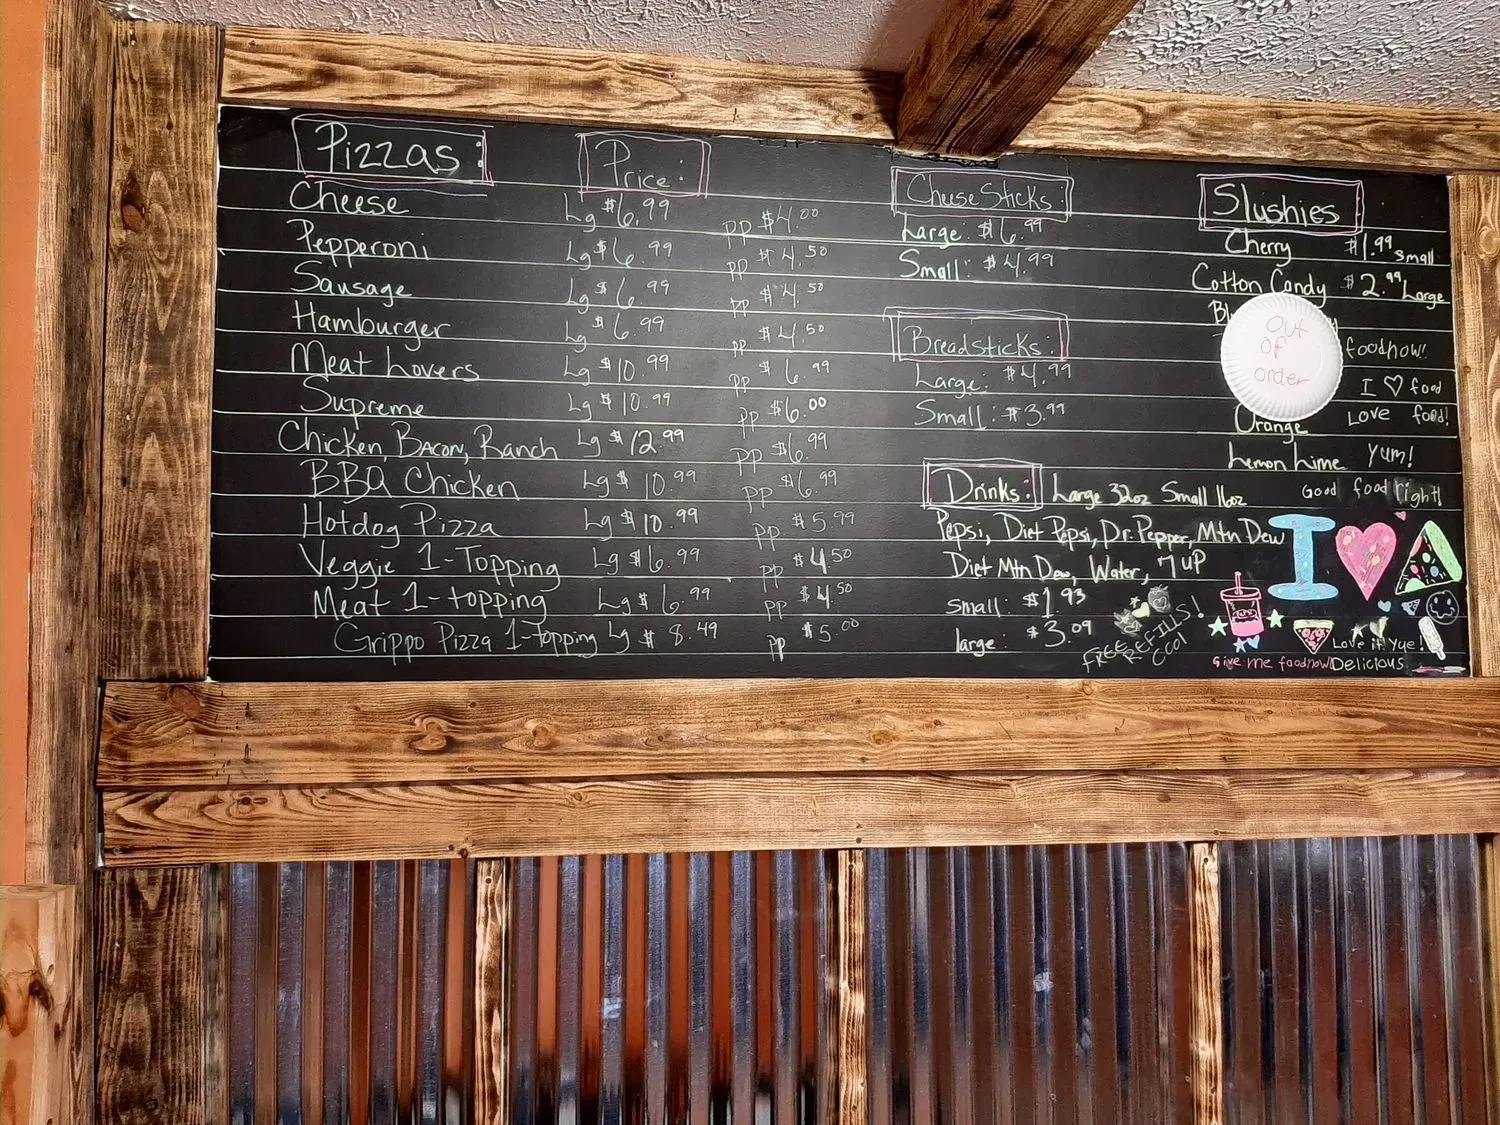 Pizzas: Price:
Cheese Lg $6.99 PP $4.00
Pepperoni Lg $6.99 PP $4.50
Sausage Lg $6.99 PP $4.50
Hamburger Lg $6.99 PP $4.50
Meat Lovers Lg $10.99 PP $6.99
Supreme Lg $10.99 PP $6.00
Chicken, Bacon, Ranch Lg $12.99 PP $6.99
BBQ Chicken Lg $10.99 PP $6.99
Hotdog Pizza Lg $10.99 PP $5.99
Veggie 1-Topping Lg $6.99 PP $4.50
Meat 1-topping Lg $6.99 PP $4.50
Grippo Pizza 1-Topping Lg $8.49 PP $5.00
Cheese Sticks:
Large: $6.99
Small: $4.99
Breadsticks:
Large: $4.99
Small: $3.99
Drinks: Large 32oz Small 16oz
Pepsi, Diet Pepsi, Dr. Pepper, Mtn Dew
Diet Mtn Dew, Water, 7UP
small: $1.93
large: $3.09
FREE REFILLS!
COOl
Slushies
Cherry $1.99 small
Cotton Candy $2.99 Large
out
of
order
foodnow!
I ♡ food
Orange Love food!
Lemon Lime Yum!
Good food right!
I
Love it! Yue!
Give me foodnow Delicious